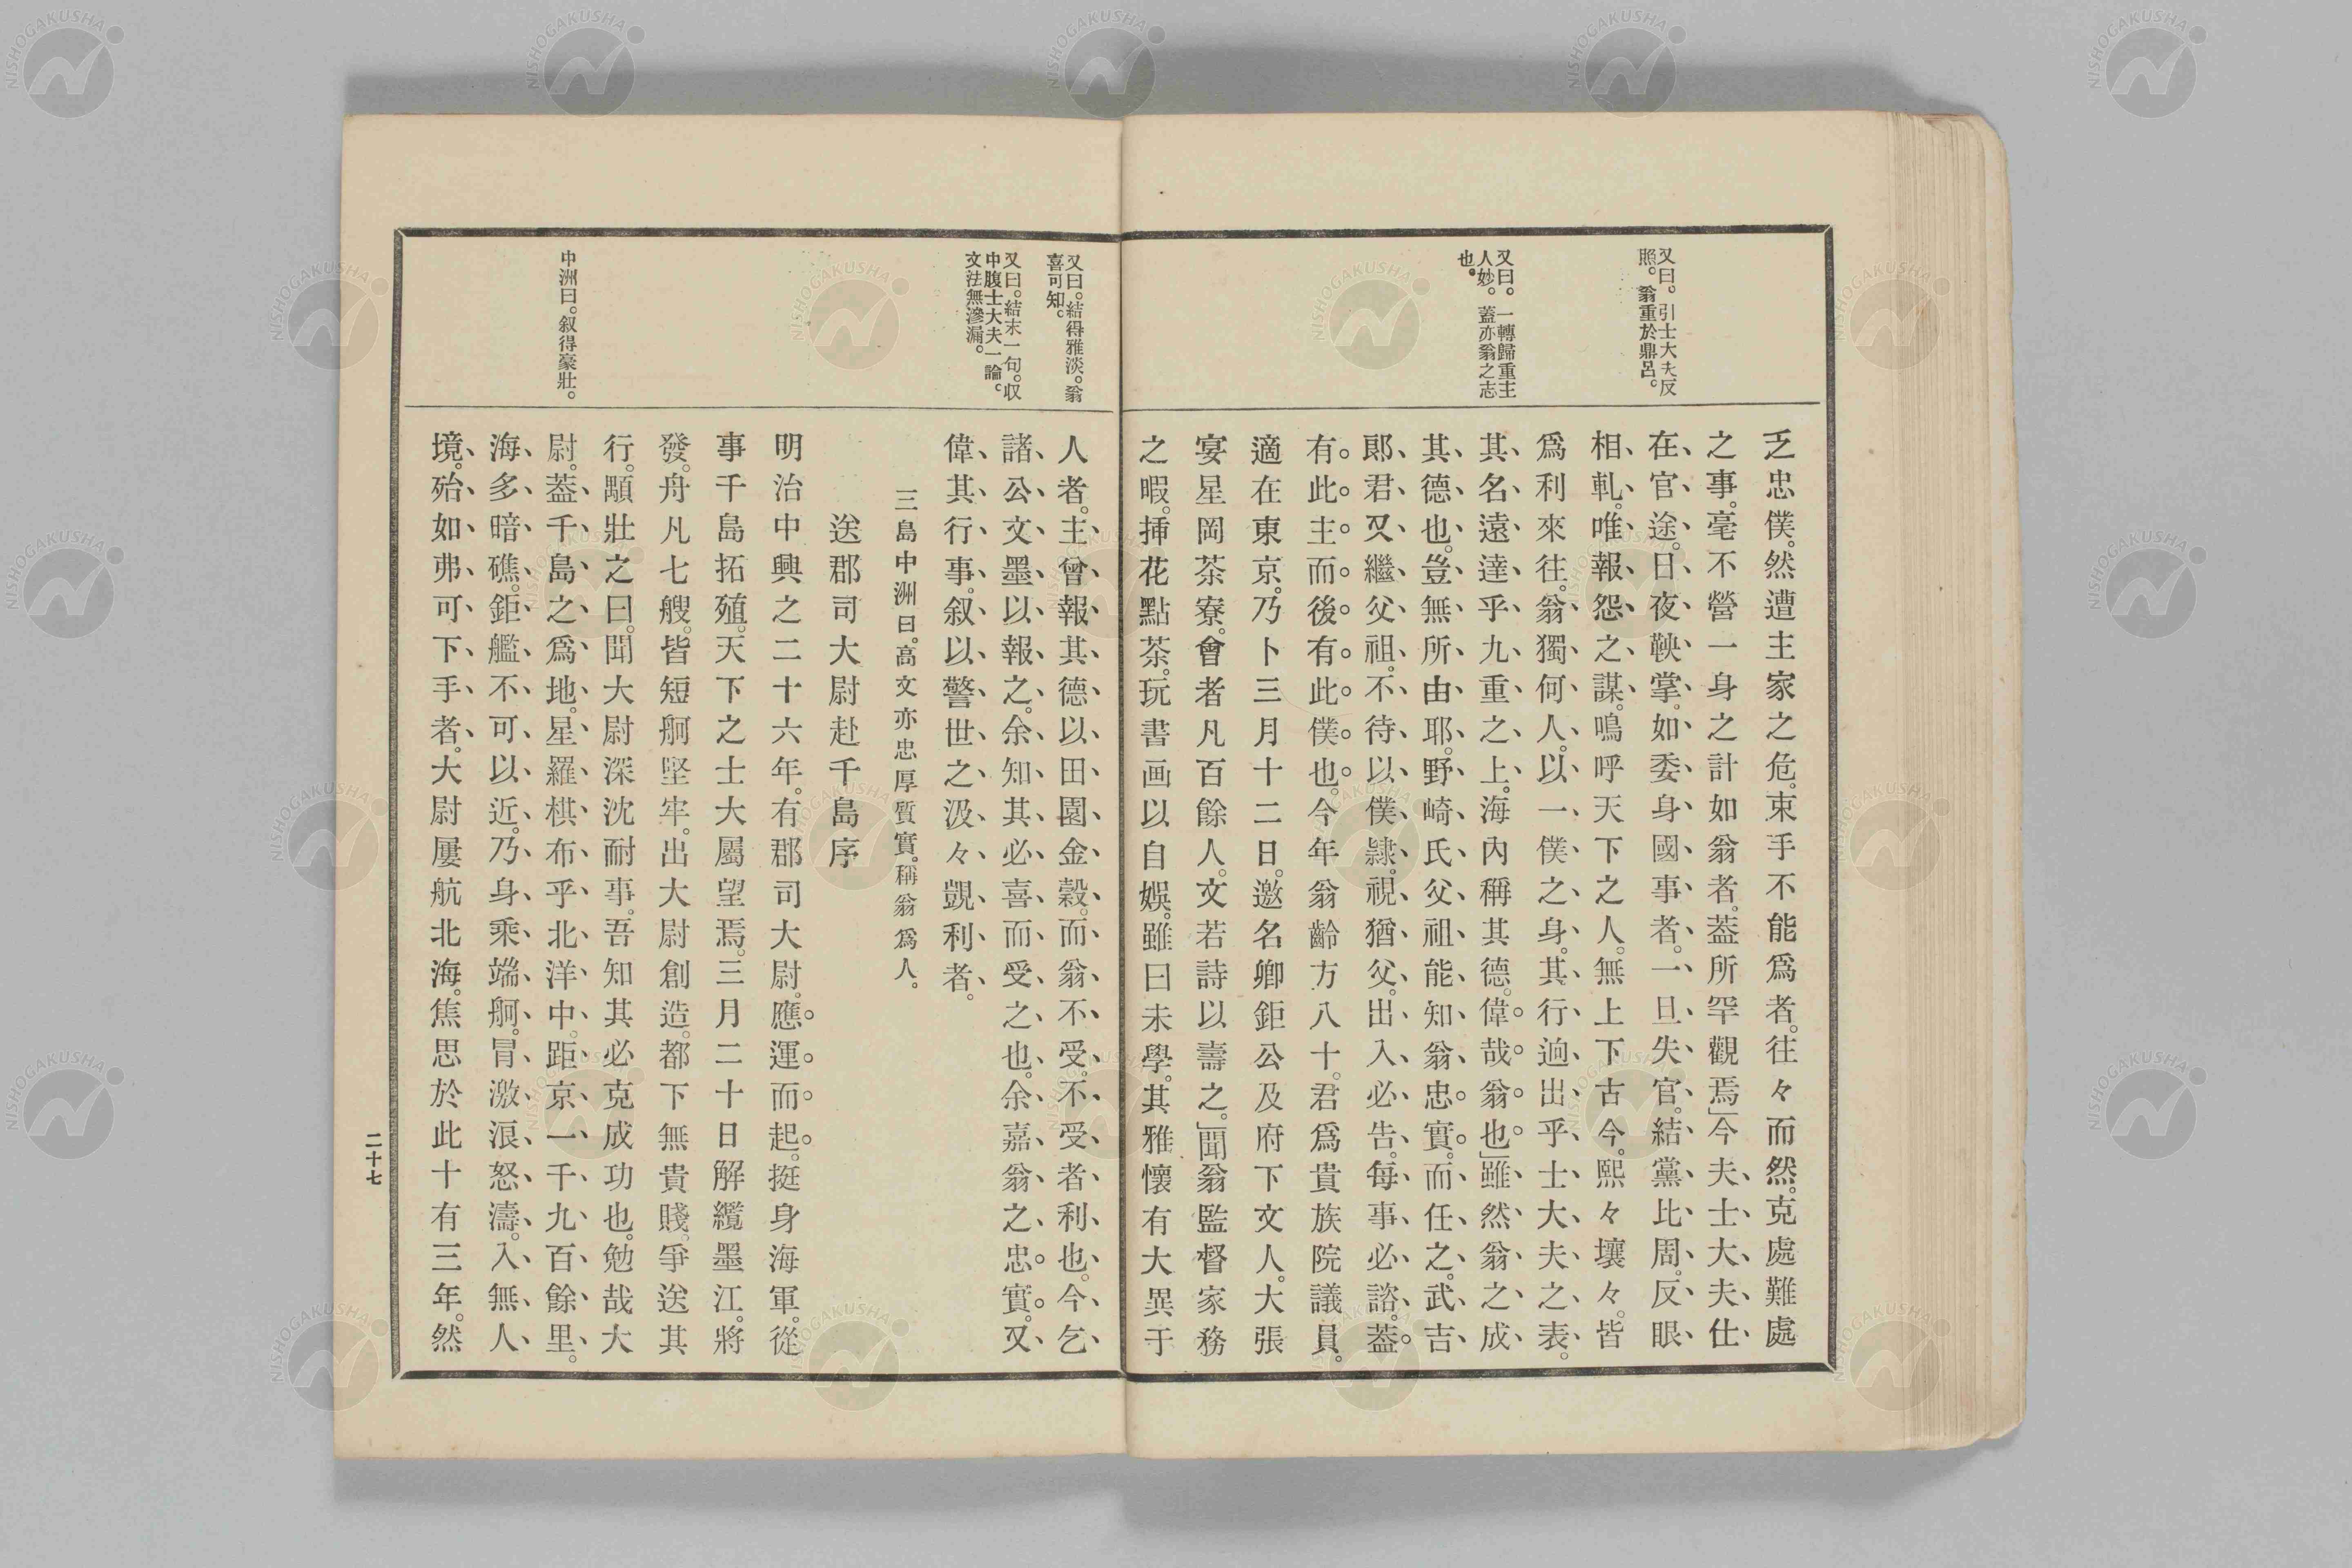 又曰。引士大夫反
照。翁重於鼎呂。
又曰。一轉歸重主
人妙。蓋亦翁之志
也。
乏忠僕。然遭主家之危。束手不能爲者。往々而然。克處難處
之事。毫不營一身之計如翁者。蓋所罕觀焉」今夫士大夫仕
在官途。日夜鞅掌。如委身國事者。一旦失官。結黨比周。反眼
相軋。唯報怨之謀。鳴呼天下之人。無上下古今。熙々壤々。皆
爲利來往。翁獨何人。以一僕之身。其行逈出乎士大夫之表。
其名遠達乎九重之上。海內稱其德。偉哉翁也」雖然翁之成
其德也。豈無所由耶。野崎氏父祖能知翁忠實。而任之。武吉
郞君又繼父祖。不待以僕隷。視猶父。出入必告。每事必諮。蓋
有此主而後有此僕也。今年翁齡方八十。君爲貴族院議員。
適在東京。乃卜三月十二日。邀名卿鉅公及府下文人。大張
宴星岡茶寮。會者凡百餘人。文若詩以壽之。」聞翁監督家務
之暇。挿花點茶。玩書画以自娛。雖曰未學。其雅懷有大異于
又曰。結得雅淡。翁
喜可知。
又曰。結末一句。収
中腹士大夫一論。
文法無滲漏。
中洲曰。叙得豪壯。
人者。主曾報其德以田園金穀。而翁不受。不受者利也。今乞
諸公文墨以報之。余知其必喜而受之也。余嘉翁之忠實。又
偉其行事。叙以警世之汲々覬利者。
三島中洲曰。高文亦忠厚質實。稱翁爲人。
送郡司大尉赴千島序
明治中興之二十六年。有郡司大尉。應運而起。挺身海軍。從
事千島拓殖。天下之士大屬望焉。三月二十日解纜墨江。將
發。舟凡七艘。皆短舸堅牢。出大尉創造。都下無貴賤。爭送其
行。顒壯之曰。聞大尉深沈耐事。吾知其必克成功也。勉哉大
尉。蓋千島之爲地。星羅棋布乎北洋中。距京一千九百餘里。
海多暗礁。鉅艦不可以近。乃身乘端舸。冒激浪怒濤。入無人
境。殆如弗可下手者。大尉屢航北海。焦思於此十有三年。然
二十七